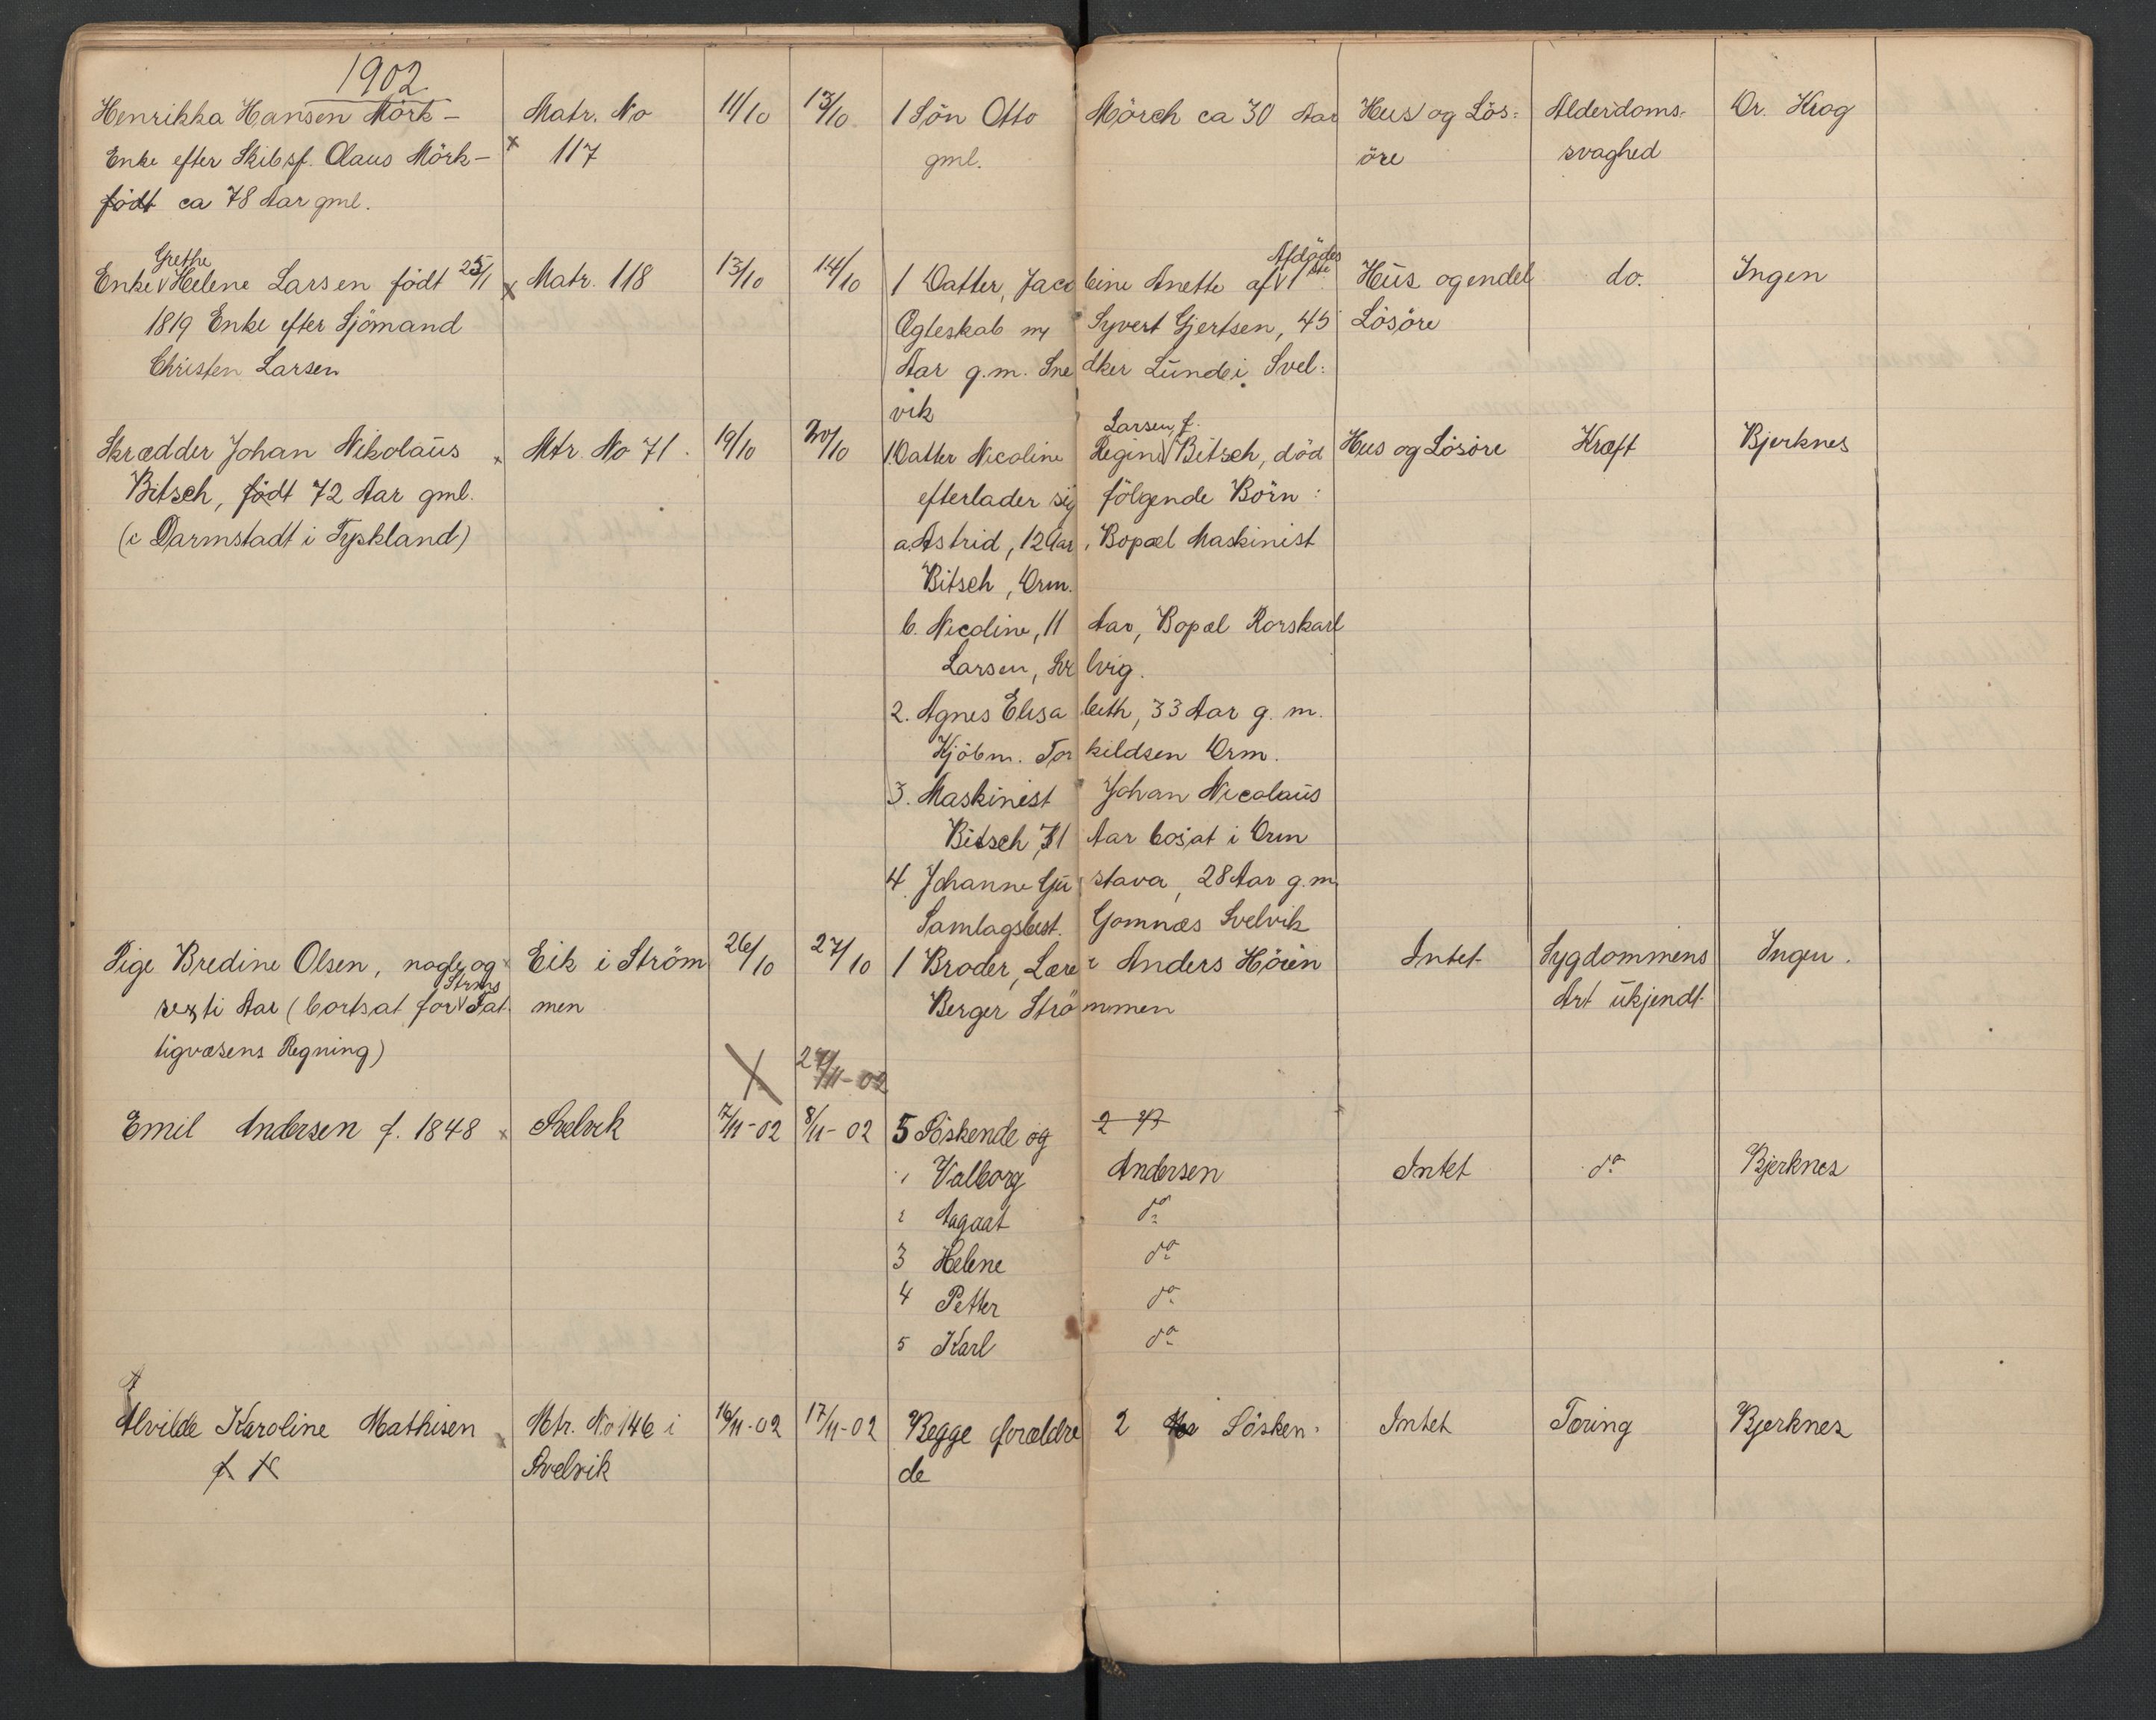 1902
Henrikka Hansen Mörk - Matr. No 11/10 13/10 1 Sön Otto Mörch ca 30 Aar Hus og Lös= Alderdoms- Dr. Krog
Enke efter Skibsf. Olaus Mörk - x 117 gml. öre svaghed
födt ca 78 Aar gml.
Grethe Afdödes
Enke V Helene Larsen födt 25/1 x Matr. 118 13/10 14/10 1 Datter, Jacobine Anette af V 1ste Hus og endel do. Ingen
1819 Enke efter Sjömand Ægteskab m Syvert Gjertsen, 45 Lösöre
Christen Larsen Aar g.m. Snedker Lunde i Svel=
vik
Larsen, f.
Skrædder Johan Nikolaus x Mtr. No 71. 19/10 20/10 1. Datter Nicoline Regine V Bitsch, död Hus og Lösöre Kræft Bjerknes
Bitsch, födt 72 Aar gml. efterlader sig fölgende Börn:
(i Darmstadt i Tyskland) a. Astrid, 12 Aar, Bopæl Maskinist
Bitsch, Drm.
b. Nicoline, 11 Aar, Bopæl Rorskarl
Larsen, Svelvig.
2. Agnes Elisabeth, 33 Aar g. m.
Kjöbm. Torkildsen Drm.
3. Maskinist Johan Nicolaus
Bitsch, 31 Aar bosat i Drm
4. Johanne Gustava, 28 Aar g. m.
Samlagsbest. Gomnæs Svelvik
Pige Bredine Olsen, nogle og x Eik i Ström 26/10 27/10 1 Broder, Lærer Anders Höien Intet Sygdommens Ingen.
Strms
sexti Aar (bortsat for V Fat- men Berger Strömmen Art ukjendt
tigvæsens Regning)
X 29/11-02
Emil Andersen f. 1848 x Svelvik 7/11-02 8/11-02 5 Söskende og 2
1 Valborg Andersen Intet do Bjerknes
2 Aagaat do
3 Helene do
4 Petter do
5 Karl do
A
Alvilde Karoline Mathisen x Mtr. No 146 i 16/11-02 17/11-02 Begge forældre 2 Sösken= Intet Tæring Bjerknes
f Svelvik de